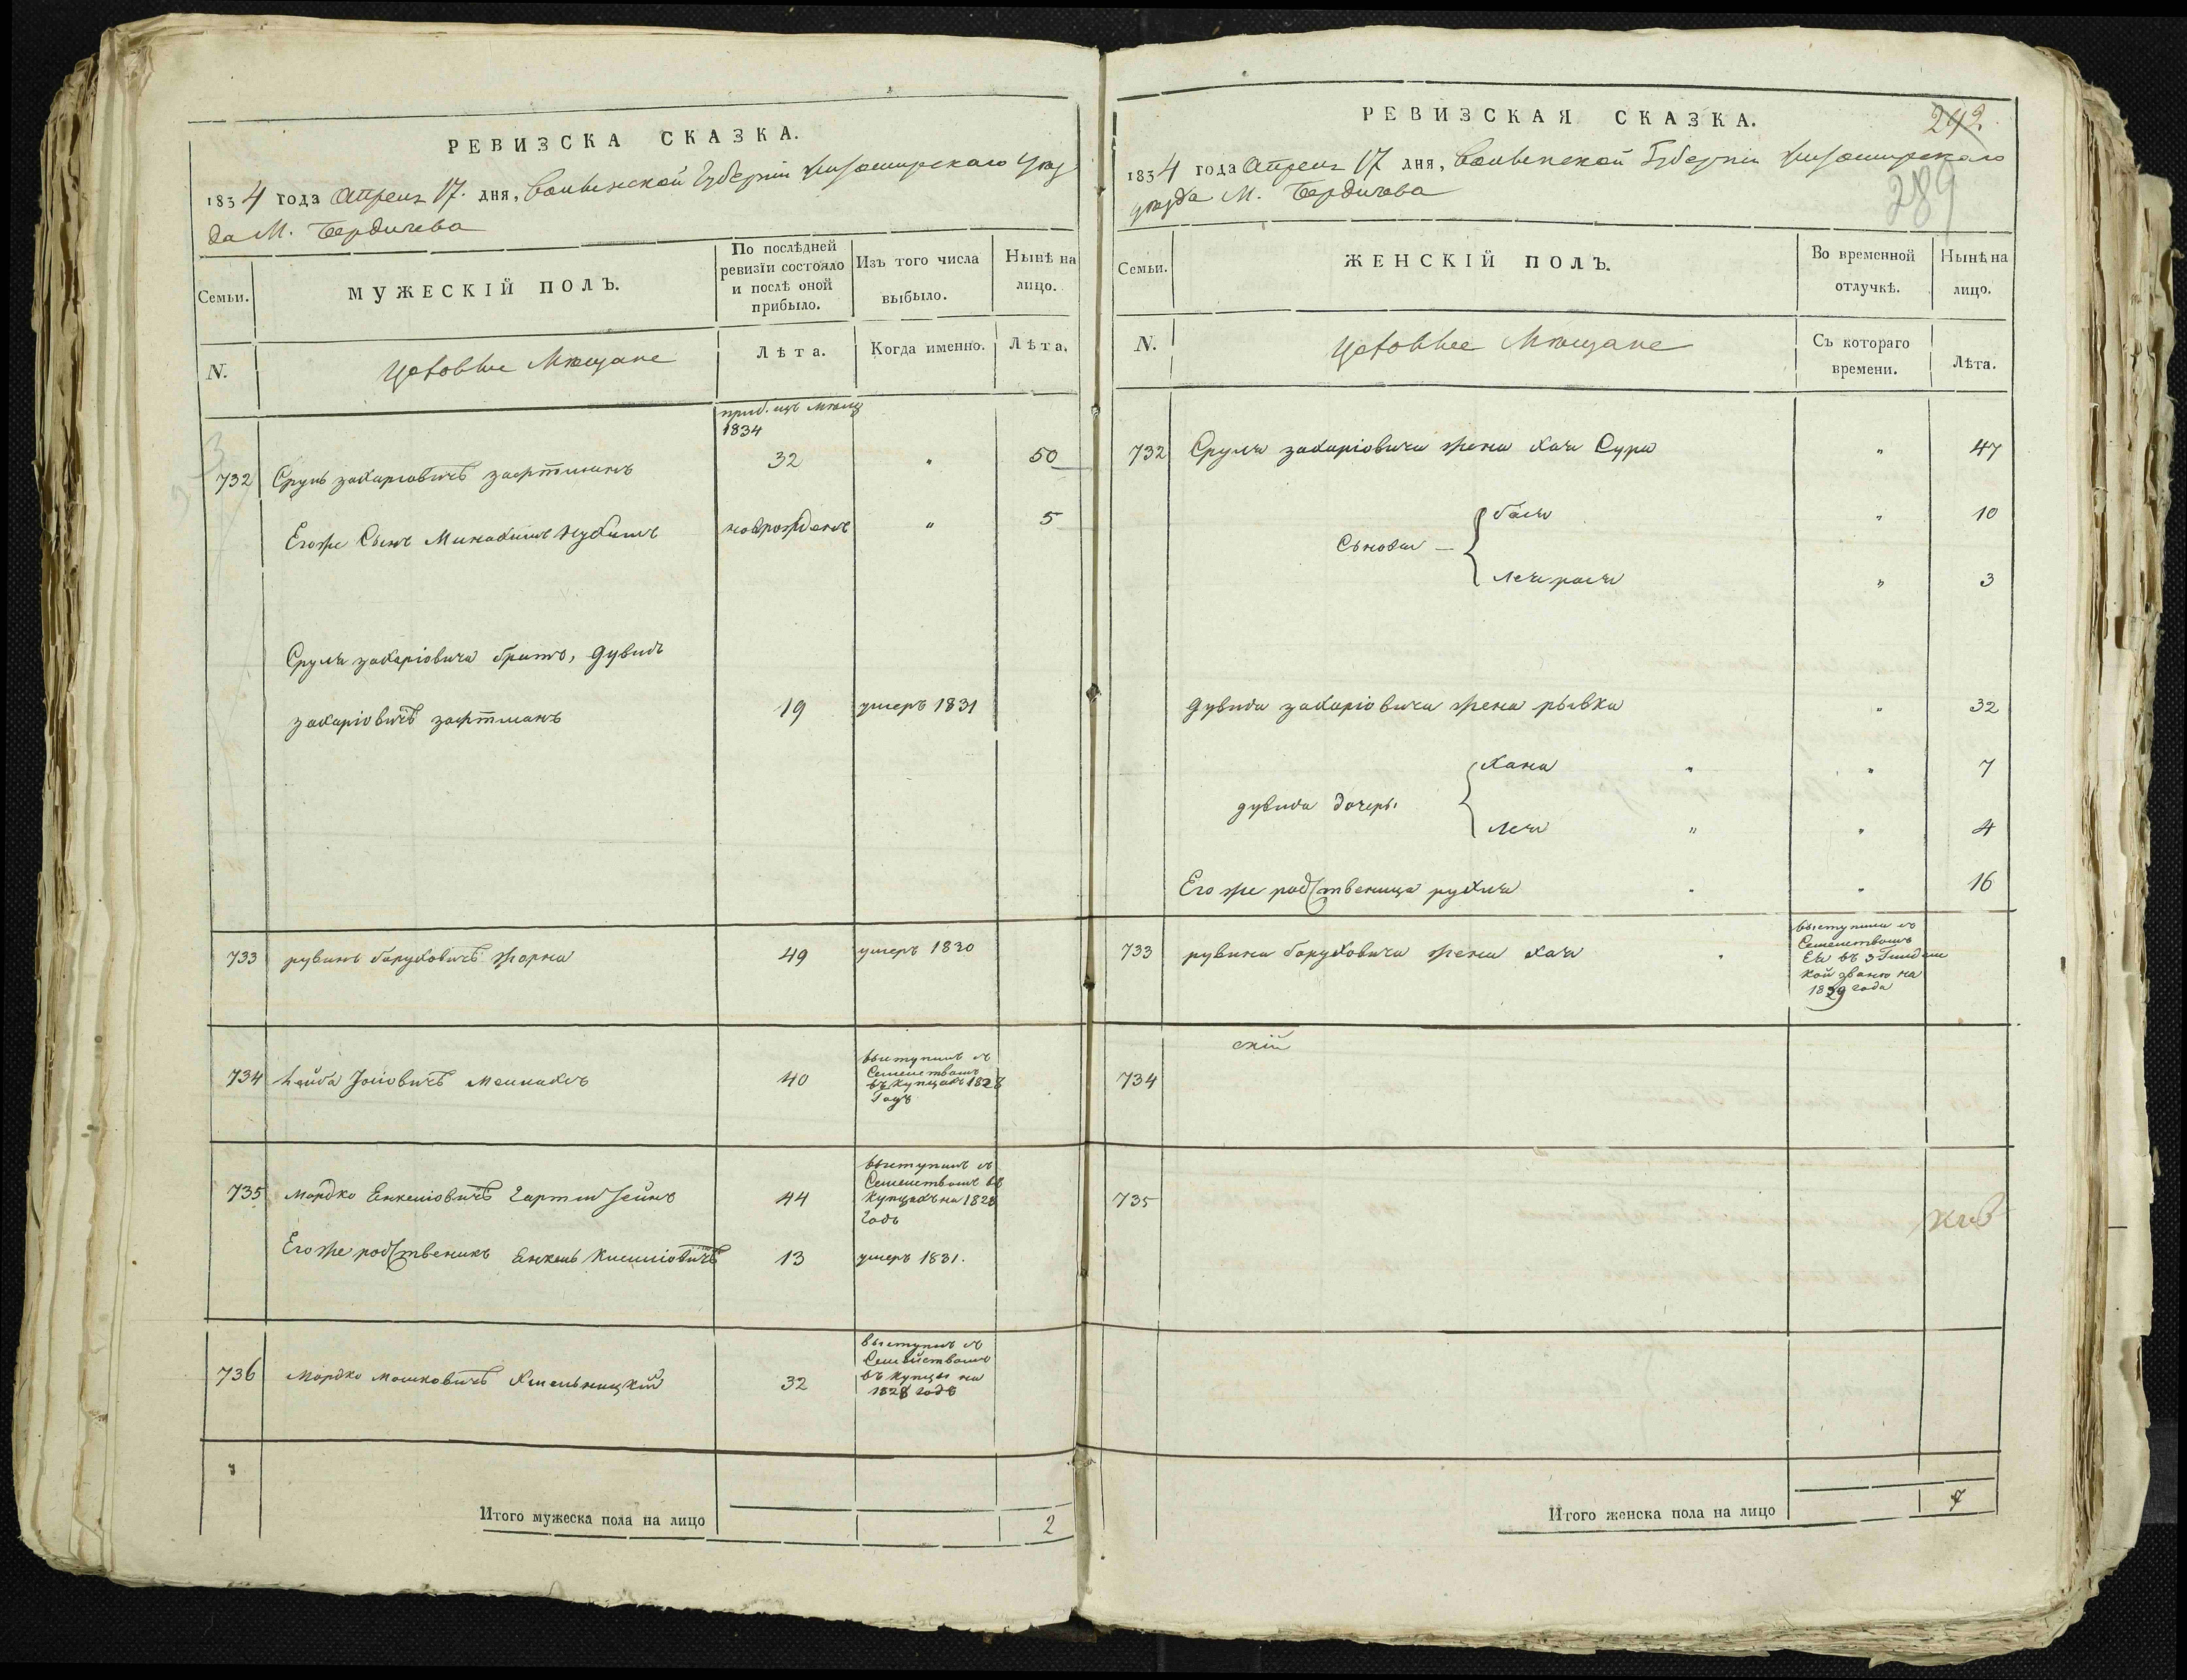 РЕВИЗСКА СКАЗКА.
1834 года Апреля 17. дня, Волынской Губернии Житомирского Уез
да М. Бердичева
Семьи.
МУЖЕСКІЙ ПОЛЪ.
По послѣдней
ревизіи состояло
и послѣ оной
прибыло.
Изъ того числа
выбыло.
Нынѣ на
лицо.
N.
Мѣщане
Лѣта.
Когда именно.
Лѣта.
приб. изъ
1834
732
Сруль Захаріовичъ Зафтманъ
32
"
50
Егоже Сынъ
новорожденъ
"
5
Сруля Захаріовича братъ, Дувидъ
Захаріовичъ Зафтманъ
19
умеръ 1831
733
Рувинъ Баруховичъ Жорна
49
умеръ 1830
734
Лейба Меламедъ
40
выступилъ съ
Семействомъ
въ купцахъ 1828
Годъ
735
Мордко Енкелiовичъ
44
выступилъ съ
Семействомъ въ
купцахъ на 1828
Годъ
Егоже родственикъ Енкель
13
умеръ 1831.
736
Мордко Мошковичъ Хмельницкій
32
выступилъ съ
Семействомъ
въ купцы на
1828 годъ
Итого мужеска пола на лицо
2
РЕВИЗСКАЯ СКАЗКА.
292.
1834 года Апреля 17 дня, Волынской Губерніи Житомирскаго
289
уезда М. Бердичева
Семьи.
ЖЕНСКІЙ ПОЛЪ.
Во временной
отлучкѣ.
Нынѣ на
лицо.
N.
Мѣщане
Съ котораго
времени.
Лѣта.
732
Сруля Захаріовича жена Хая Сура
"
47
Бася
"
10
"
3
Дувида Захаріовича жена Рывка
"
32
Хана
"
"
7
Дувида дочеры
Лея
"
"
4
Его же родственица Рухля
"
"
16
733
Рувина Баруховича жена Хая
выступила съ
Семействомъ
Ея въ 3 Гилдии
кой званю на
1829 года
скій
734
735
Итого женска пола на лицо
7